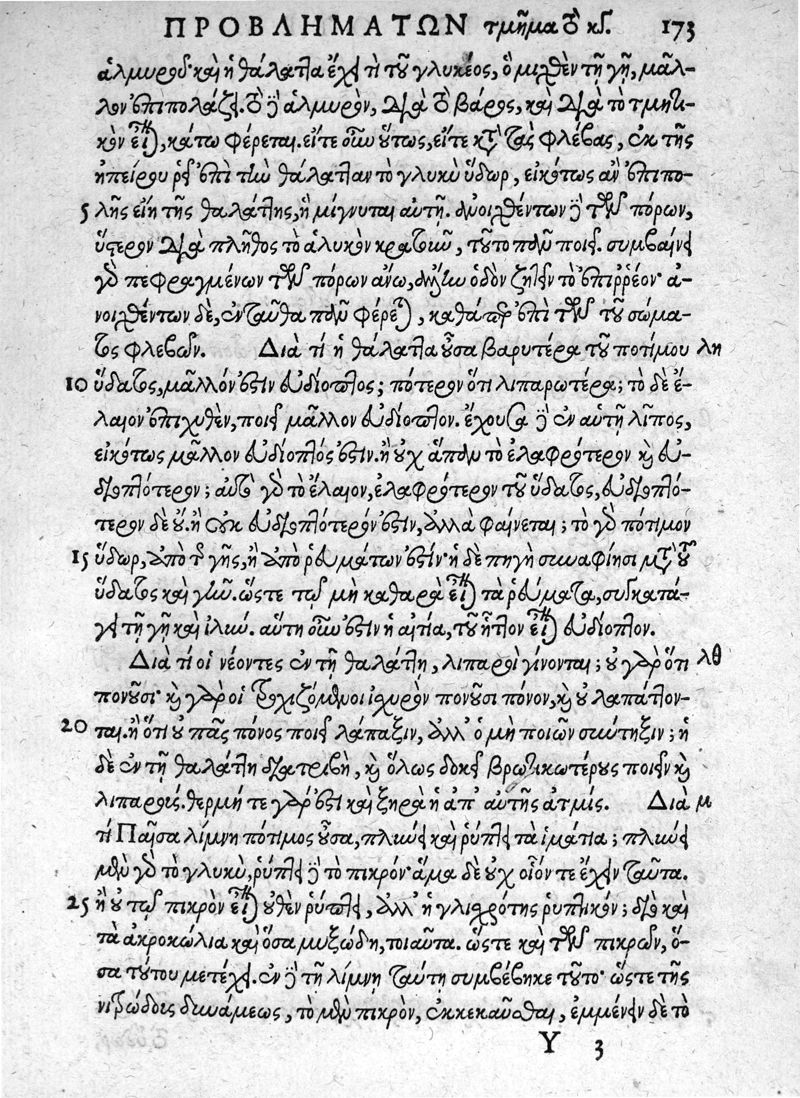 ΠΡΟΒΛΗΜΑΤΩΝ τμῆμα τὸ κγ. 173
ἁλμυρόν· καὶ ἡ θάλαττα ἔχει τὶ τοῦ γλυκέος, ὃ μιχθὲν τῇ γῇ, μᾶλ-
λον ἐπιπολάζει. τὸ δὲ ἁλμυρὸν, διὰ τὸ βάρος, καὶ διὰ τὸ τμητι-
κὸν εἶναι, κάτω φέρεται. εἴτε οὖν οὕτως, εἴτε κατὰ τὰς φλέβας, ἐκ τῆς
ἠπείρου ῥεῖ ἐπὶ τὴν θάλατταν τὸ γλυκὺ ὕδωρ, εἰκότως ἂν ἐπιπο-
5 λῆς εἴη τῆς θαλάττης, ἢ μίγνυται αὐτῇ. ἀνοιχθέντων δὲ τῶν πόρων,
ὕστερον διὰ πλῆθος τὸ ἁλυκὸν κρατοῦν, τοῦτο πᾶν ποιεῖ. συμβαίνει
γὰρ πεφραγμένων τῶν πόρων ἄνω, ἄλλην ὁδὸν ζητεῖν τὸ ἐπιῤῥέον· ἀ-
νοιχθέντων δὲ, ἐνταῦθα πᾶν φέρεται, καθάπερ ἐπὶ τῶν τοῦ σώμα-
τος φλεβῶν. Διὰ τί ἡ θάλαττα οὖσα βαρυτέρα τοῦ ποτίμου λη
10 ὕδατος, μᾶλλόν ἐστιν εὐδίοπτος; πότερον ὅτι λιπαρωτέρα; τὸ δὲ ἔ-
λαιον ἐπιχυθὲν, ποιεῖ μᾶλλον εὐδίοπτον. ἔχουσα δὲ ἐν αὑτῇ λίπος,
εἰκότως μᾶλλον εὐδίοπτός ἐστιν. ἢ οὐχ ἅπαν τὸ ἐλαφρότερον καὶ εὐ-
διοπτότερον; αὐτὸ γὰρ τὸ ἔλαιον, ἐλαφρότερον τοῦ ὕδατος, εὐδιοπτό-
τερον δὲ οὔ. ἢ οὐκ εὐδιοπτότερόν ἐστιν, ἀλλὰ φαίνεται; τὸ γὰρ πότιμον
15 ὕδωρ, ἀπὸ τῆς γῆς, ἢ ἀπὸ ῥευμάτων ἐστίν· ἡ δὲ πηγὴ συναφίησι μετὰ τοῦ
ὕδατος καὶ γῆν. ὥστε τῷ μὴ καθαρὰ εἶναι τὰ ῥεύματα, συγκατά-
γει τῇ γῇ καὶ ἰλύν. αὕτη οὖν ἐστιν ἡ αἰτία, τοῦ ἧττον εἶναι εὐδίοπτον.
Διὰ τί οἱ νέοντες ἐν τῇ θαλάττῃ, λιπαροὶ γίνονται; οὐ γὰρ ὅτι λθ
πονοῦσι· καὶ γὰρ οἱ τροχιζόμενοι ἰσχυρὸν πονοῦσι πόνον, καὶ οὐ λαπάττον-
20 ται. ἢ ὅτι οὐ πᾶς πόνος ποιεῖ λάπαξιν, ἀλλ' ὁ μὴ ποιῶν σύντηξιν; ἡ
δὲ ἐν τῇ θαλάττῃ διατριβὴ, καὶ ὅλως δοκεῖ βρωτικωτέρους ποιεῖν καὶ
λιπαρούς. θερμή τε γάρ ἐστι καὶ ξηρὰ ἡ ἀπ' αὐτῆς ἀτμίς. Διὰ μ
τί Παῖσα λίμνη πότιμος οὖσα, πλύνει καὶ ῥύπτει τὰ ἱμάτια; πλύνει
μὲν γὰρ τὸ γλυκὺ, ῥύπτει δὲ τὸ πικρόν· ἅμα δὲ οὐχ οἷόν τε ἔχειν ταῦτα.
25 ἢ οὐ τῷ πικρὸν εἶναι οὐθὲν ῥύπτει, ἀλλ' ἡ γλισχρότης ῥυπτικόν; διὸ καὶ
τὰ ἀκροκώλια καὶ ὅσα μυξώδη, τοιαῦτα. ὥστε καὶ τῶν πικρῶν, ὅ-
σα τούτου μετέχει. ἐν δὲ τῇ λίμνῃ ταύτῃ συμβέβηκε τοῦτο· ὥστε τῆς
νιτρώδους δυνάμεως, τὸ μὲν πικρὸν, ἐκκεκαῦσθαι, ἐμμένειν δὲ τὸ
Y 3